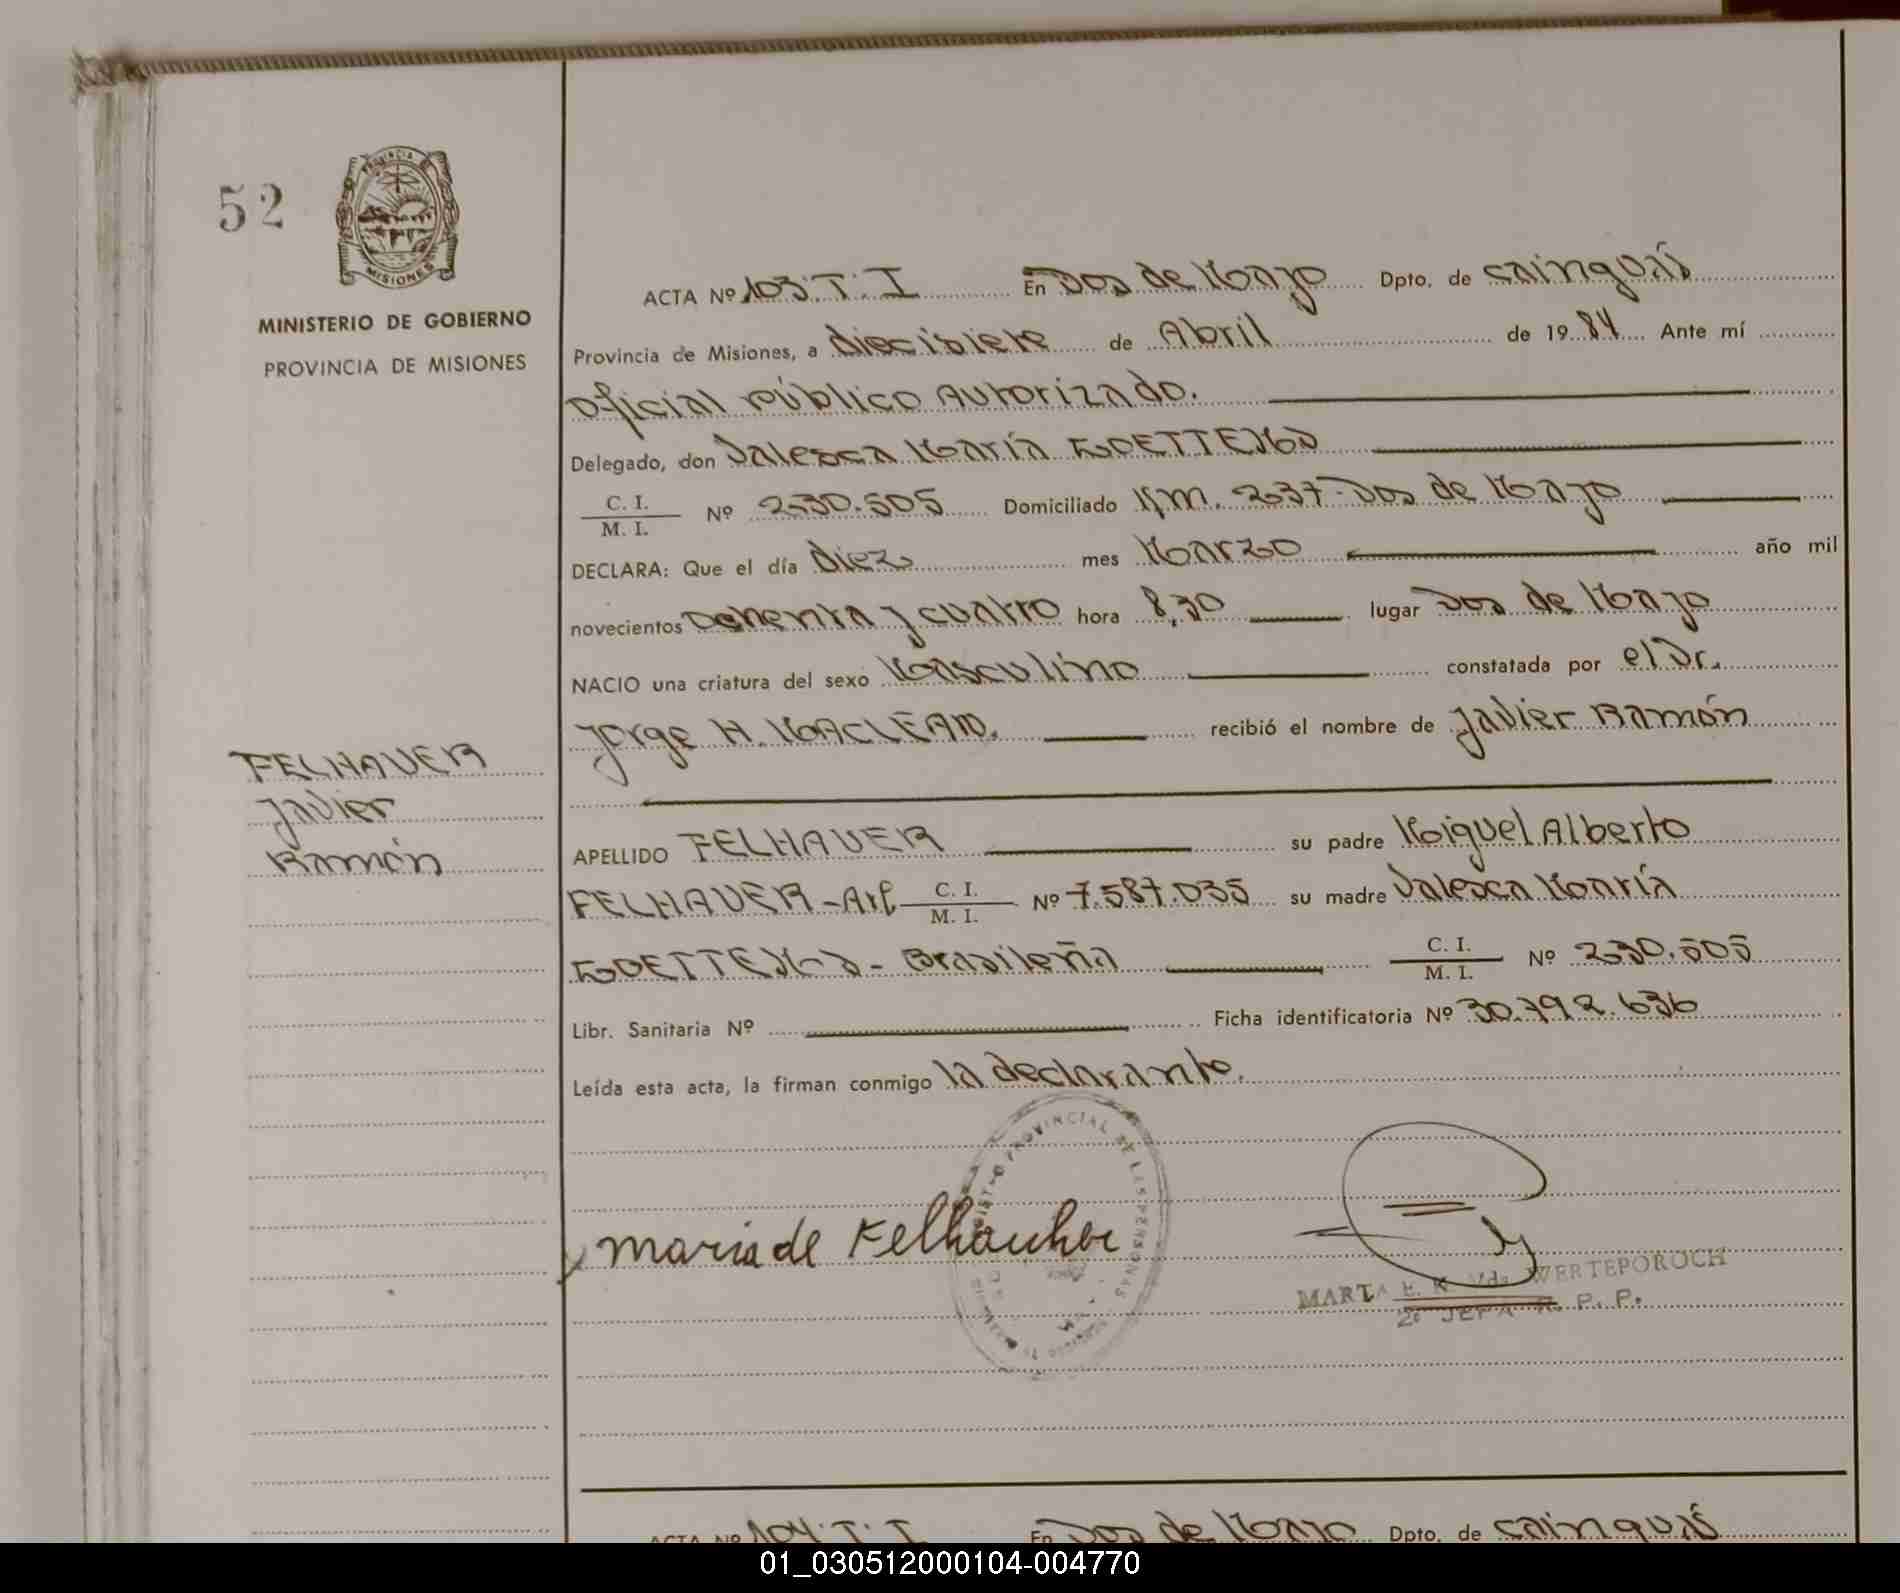 52
PROVINCIA DE
MISIONES
MINISTERIO DE GOBIERNO
PROVINCIA DE MISIONES
FELHAUER
Javier
Ramón
ACTA Nº 103.T.I En Dos de Mayo Dpto. de Cainguás
Provincia de Misiones, a diecisiete de Abril de 1984 Ante mí
Oficial Público Autorizado.
Delegado, don Valesca María GOETTEMS
C. I. / M. I. Nº 230.505 Domiciliado Km. 237-Dos de Mayo
DECLARA: Que el día diez mes Marzo año mil
novecientos Ochenta y cuatro hora 8,30 lugar Dos de Mayo
NACIO una criatura del sexo Masculino constatada por el Dr.
Jorge H. MACLEAN. recibió el nombre de Javier Ramón
APELLIDO FELHAUER su padre Miguel Alberto
FELHAUER-Arg. C. I. / M. I. Nº 7.587.035 su madre Valesca María
GOETTEMS- Brasileña C. I. / M. I. Nº 230.505
Libr. Sanitaria Nº Ficha identificatoria Nº 30.792.636
Leída esta acta, la firman conmigo la declarante.
PROVINCIAL DE LAS PERSONAS
maria de Felhauher
MARTA E. K. Vda. WERTEPOROCH
2º JEFA R. P. P.
ACTA Nº 104.T.I En Dos de Mayo Dpto. de Cainguás
01_030512000104-004770